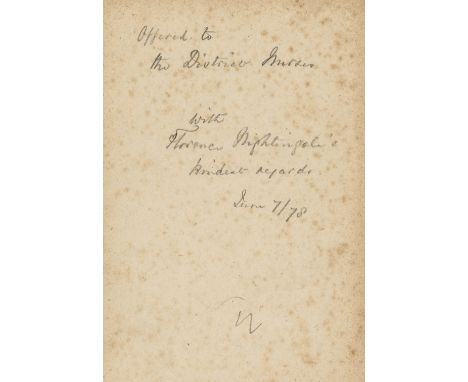 Offered to
the District Nurses
with
Florence Nightingale's
kindest regards
June 7/78